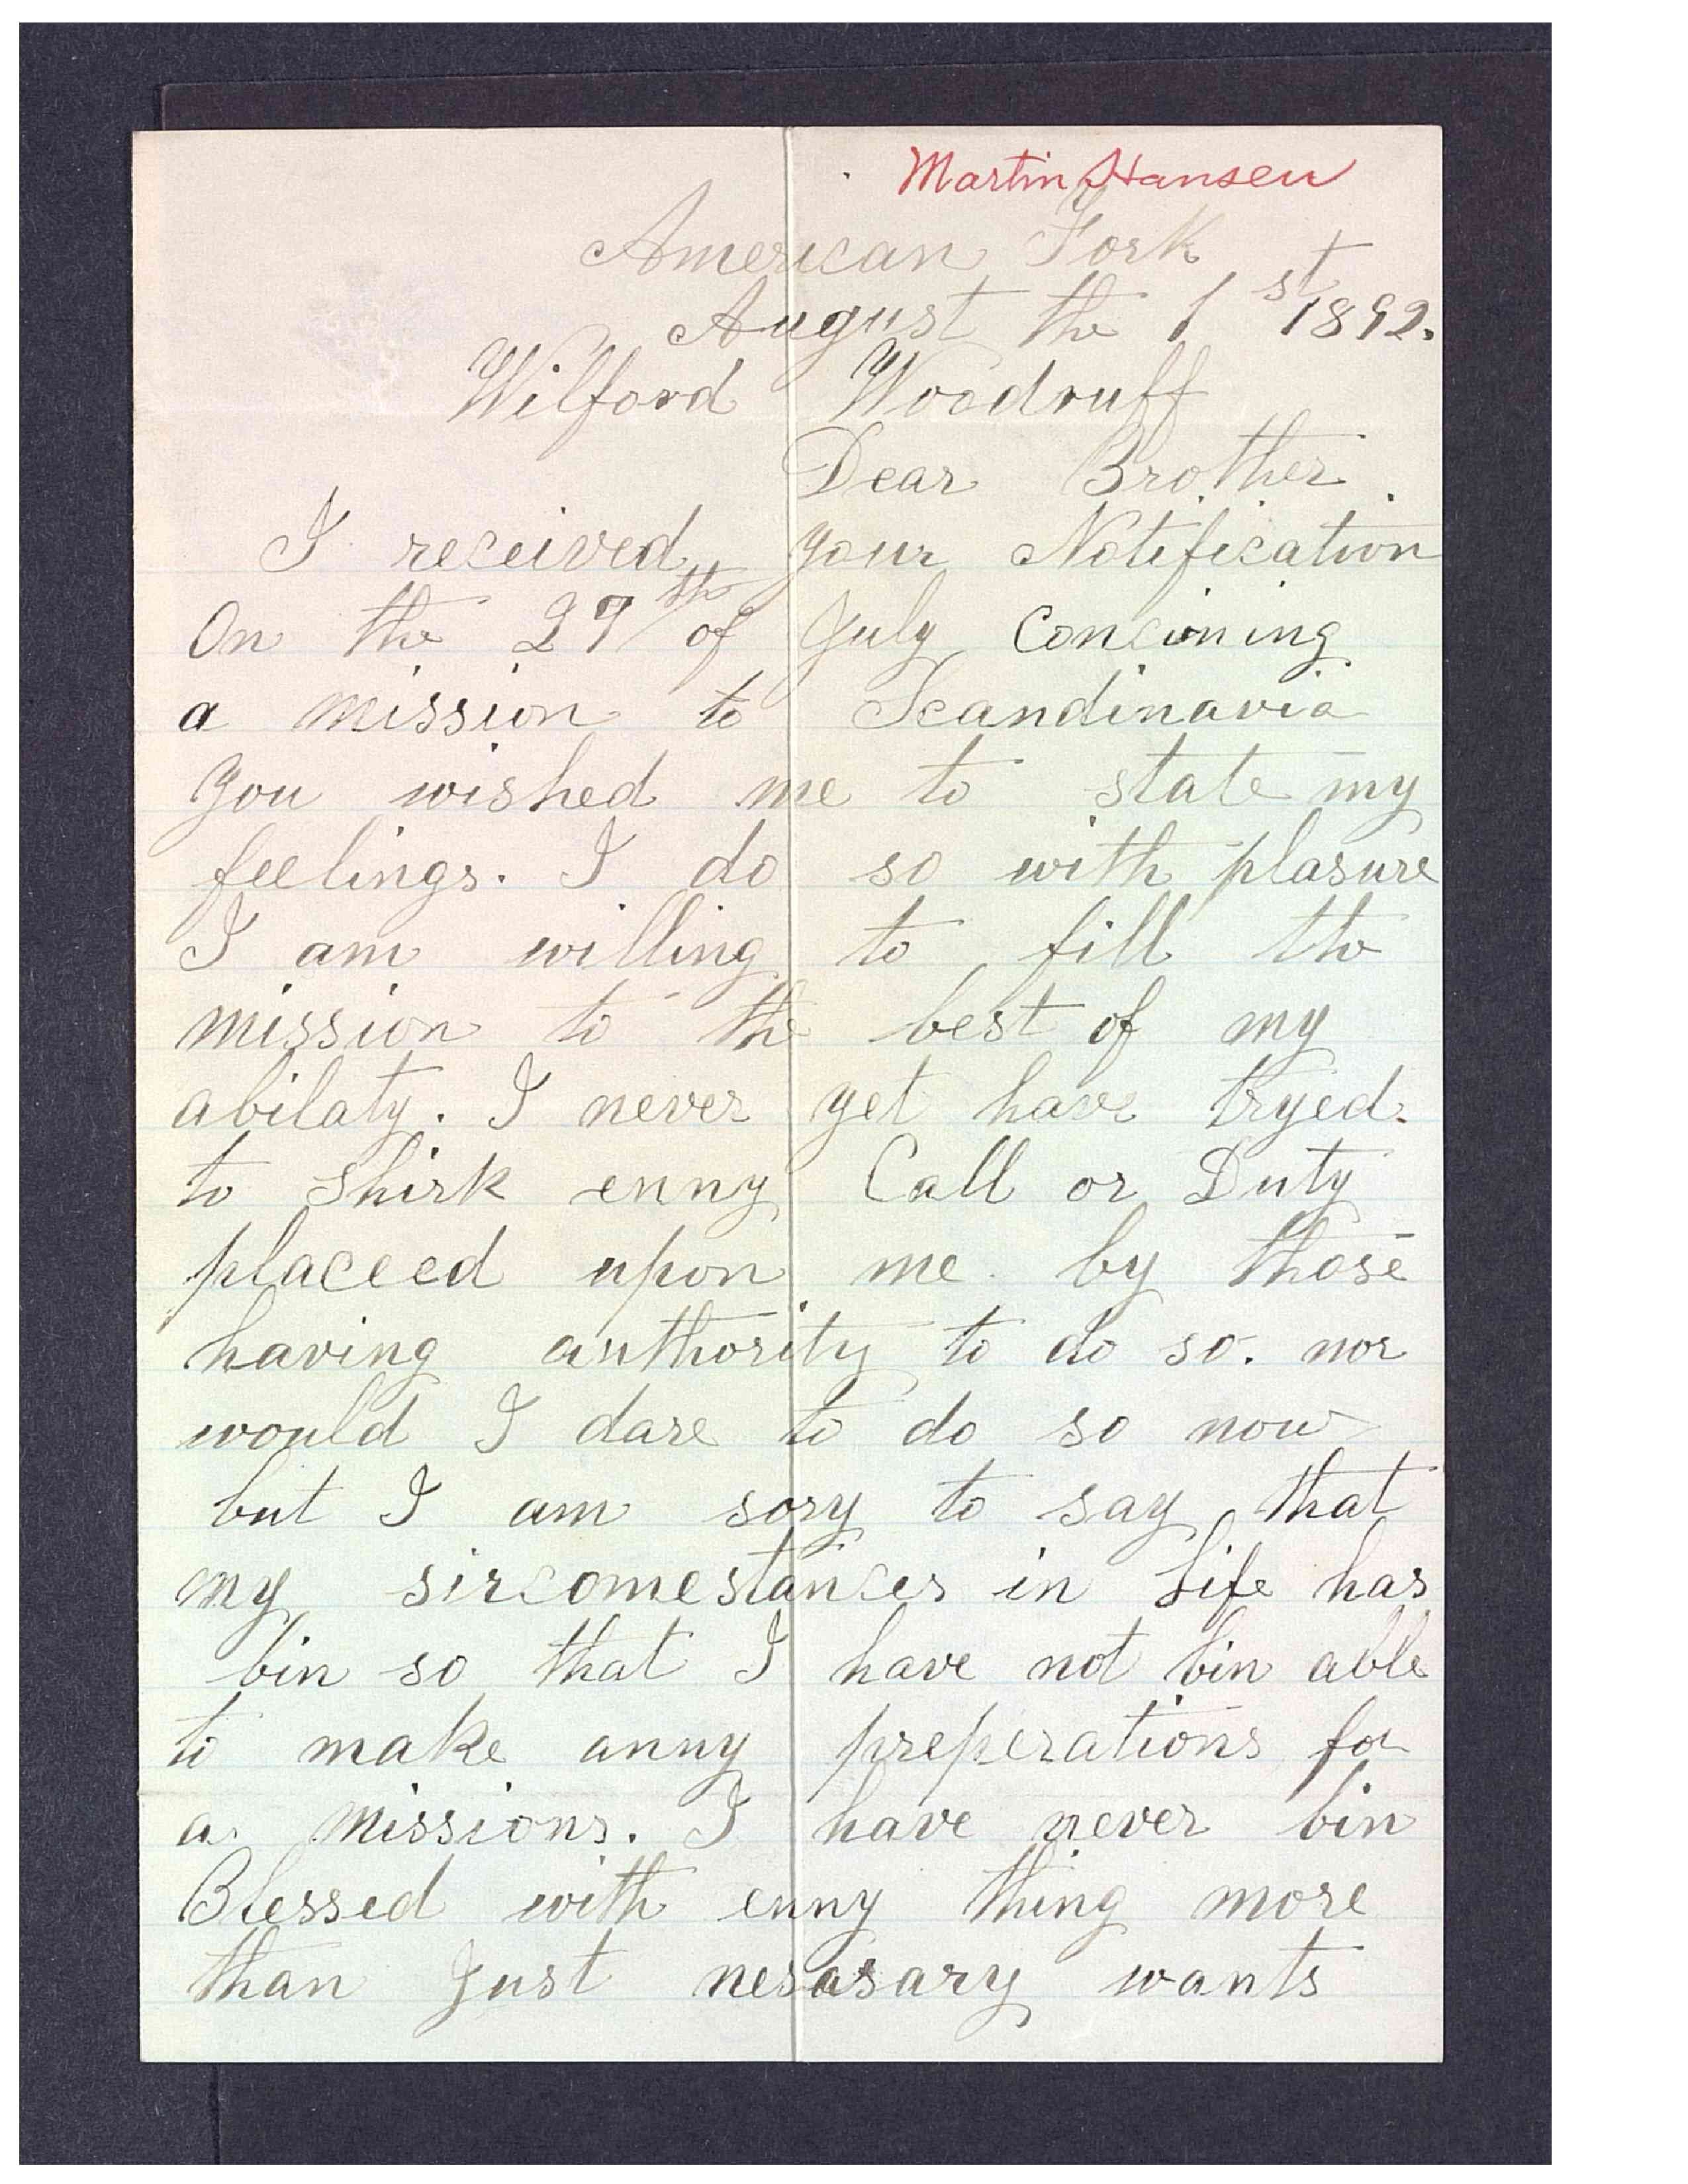 Martin Hansen
American Fork
August the 1st 1892.
Wilford Woodruff
Dear Brother
I received your Notification
On the 27th of July Concirning
a mission to Scandinavia
you wished me to state my
feelings. I do so with plasure
I am willing to fill the
mission to the best of my
abilaty. I never yet have tryed.
to shirk enny Call or Duty
placeed upon me by those
having authority to do so. nor
would I dare to do so now
but I am sory to say that
my sircomestances in Life has
bin so that I have not bin able
to make anny preperations for
a missions. I have never bin
Blessed with enny thing more
than Just nesasary wants